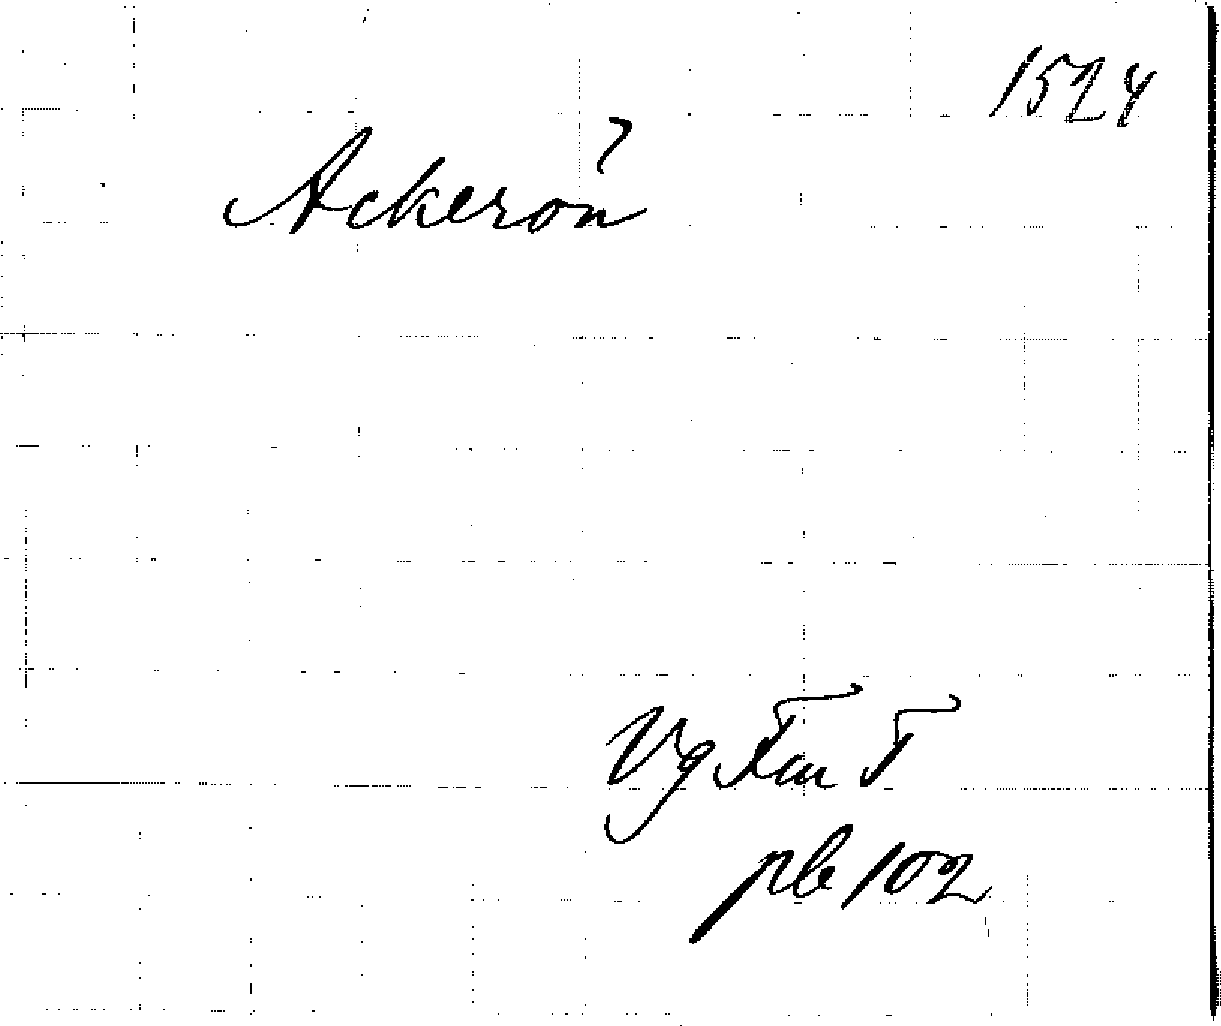 1524
Ackerön
Vg Fan T
pb 102